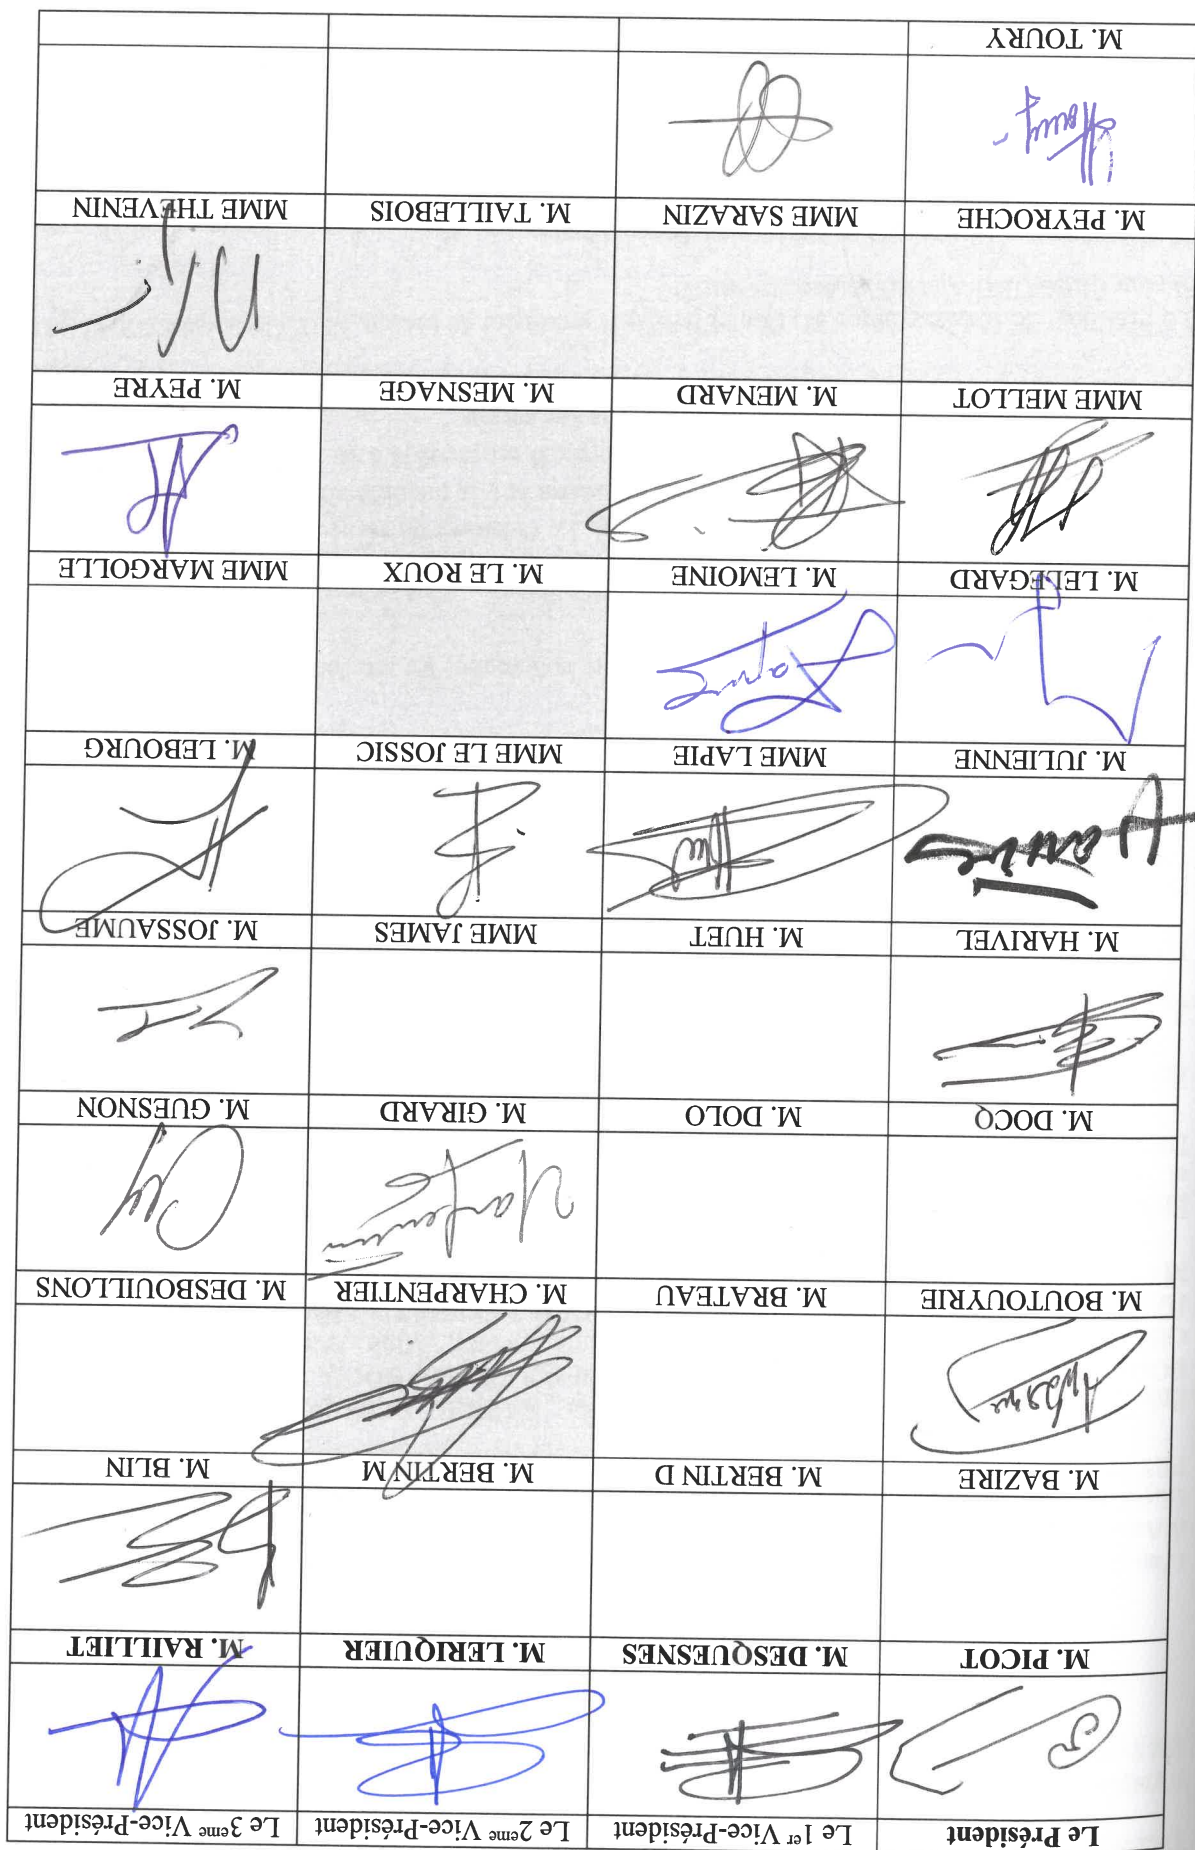 Le Président Le 1er Vice-Président Le 2eme Vice-Président Le 3eme Vice-Président
M. PICOT M. DESQUESNES M. LERIQUIER M. RAILLIET
M. BAZIRE M. BERTIN D M. BERTIN M M. BLIN
M. BOUTOUYRIE M. BRATEAU M. CHARPENTIER M. DESBOUILLONS
M. DOCQ M. DOLO M. GIRARD M. GUESNON
M. HARIVEL M. HUET MME JAMES M. JOSSAUME
M. JULIENNE MME LAPIE MME LE JOSSIC M. LEBOURG
M. LELEGARD M. LEMOINE M. LE ROUX MME MARGOLLE
MME MELLOT M. MENARD M. MESNAGE M. PEYRE
M. PEYROCHE MME SARAZIN M. TAILLEBOIS MME THEVENIN
M. TOURY